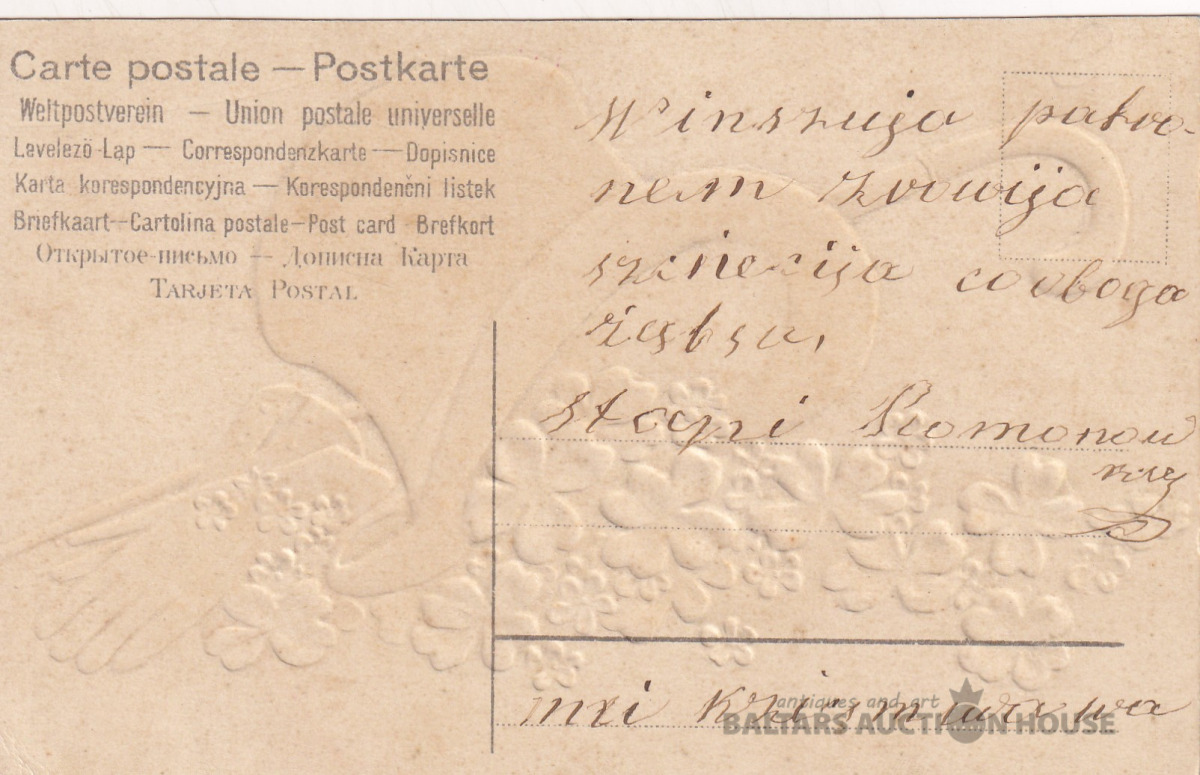 Carte postale — Postkarte
Weltpostverein — Union postale universelle
Levelező-Lap — Correspondenzkarte — Dopisnice
Karta korespondencyjna — Korespondenčni listek
Briefkaart—Cartolina postale—Post card Brefkort
Открытое-письмо — Дописна Карта
TARJETA POSTAL
Winszuja patro-
nem zvowija
szcinecija co oboga
żąbsu,
stapi Romonow
rzy
mei
antiques and art
BALTARS AUCTION HOUSE